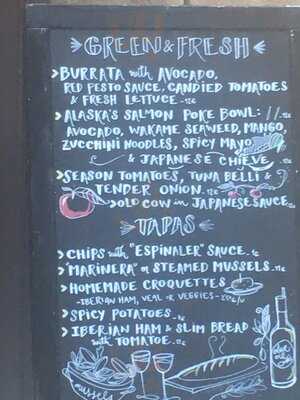 GREEN & FRESH
BURRATA with AVOCADO,
RED PESTO SAUCE, CANDIED TOMATOES
& FRESH LETTUCE
ALASKA'S SALMON POKE BOWL:
AVOCADO, WAKAME SEAWEED, MANGO,
ZUCCHINI NOODLES, SPICY MAYO
& JAPANESE CHIEVE
SEASON TOMATOES, TUNA BELLI &
TENDER ONION.
OLD COW in JAPANESE SAUCE
TAPAS
CHIPS with "ESPINALER" SAUCE
"MARINERA" or STEAMED MUSSELS
HOMEMADE CROQUETTES
-IBERIAN HAM, VEAL or VEGGIES-
SPICY POTATOES
IBERIAN HAM & SLIM BREAD
with TOMATOE
mussels
olive oil